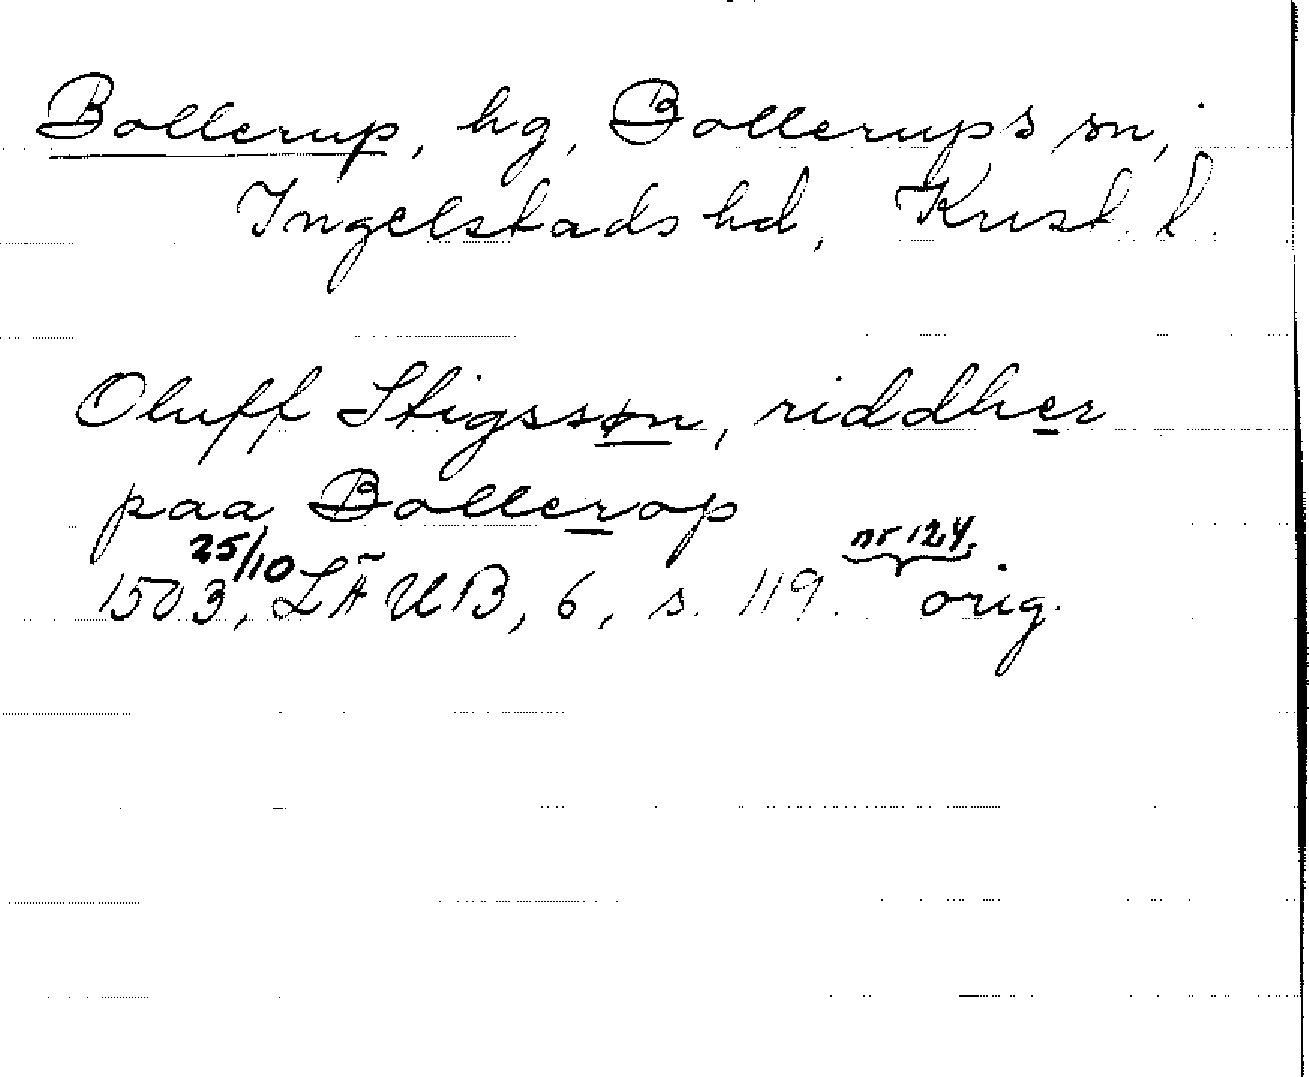 Bollerup, hg, Bollerups sn,
Ingelstads hd, Krist. l.
Oluff Stigssøn, riddher
paa Bollerop
25/10 nr 124.
1503, LÄUB, 6, s. 119. orig.